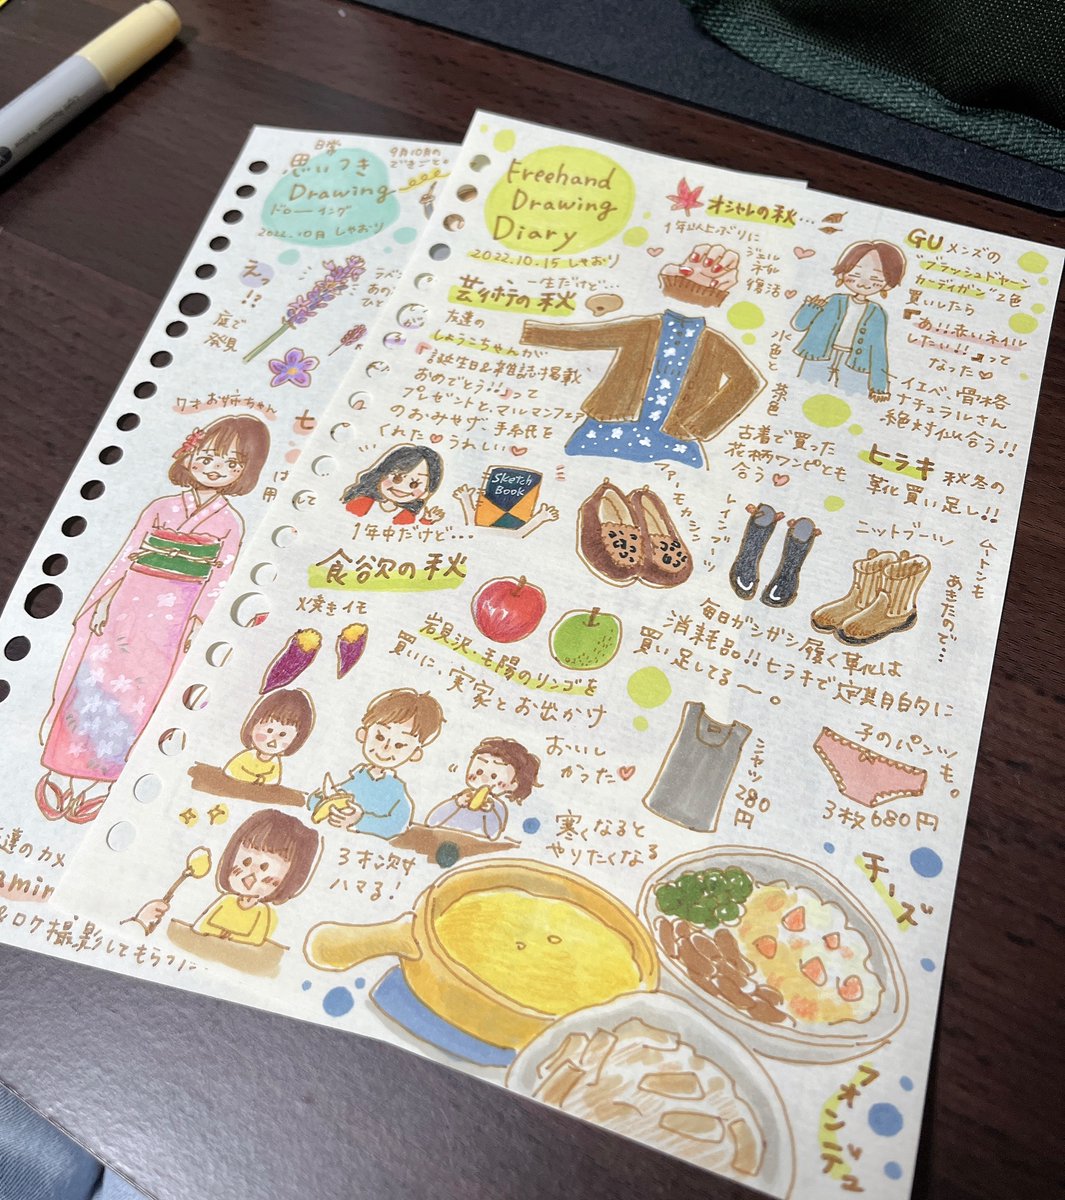 日常
思いつき
Drawing
ドローイング
2022.10月 しゃおり
9月10月の
できごと。
えっ
!?
庭で
発見
ラベ
あの
ひと
ワオお姉ちゃん
七
は
用
達のカメ
&ロケ撮影してもらった
Freehand
Drawing
Diary
2022.10.15 しゃおり
オシャレの秋…
1年以上ぶりに
ジェル
ネイル
復活♡
GU メンズの
"ブラッシュドヤーン
カーディガン"2色
買いしたら
『あ!!赤いネイル
したい!!』って
なった♡
イエベ、骨格
ナチュラルさん
絶対似合う!!
水色と
茶色
古着で買った
花柄ワンピとも
合う♡
一生だけど…
芸術の秋
友達の
しょうこちゃんが
『誕生日&雑誌掲載
おめでとう!!』って
プレゼントと、マルマンフェア
のおみやげ、手ぬぐいを
くれた♡うれしい♡
Sketch
Book
ヒラキ 秋冬の
靴買い足し!!
ファー
モカシン
レインブーツ
ニットブーツ
ムートンも
あきたので…
毎日ガシガシ履く靴は
消耗品!!ヒラキで定期的に
買い足してる〜。
1年中だけど…
食欲の秋
焼きイモ
岩見沢、毛陽のリンゴを
買いに、実家とお出かけ
おいし
かった♡
シャツ
280
円
子のパンツも。
3枚680円
3才次女
ハマる!
寒くなると
やりたくなる
チーズ
フォンデュ